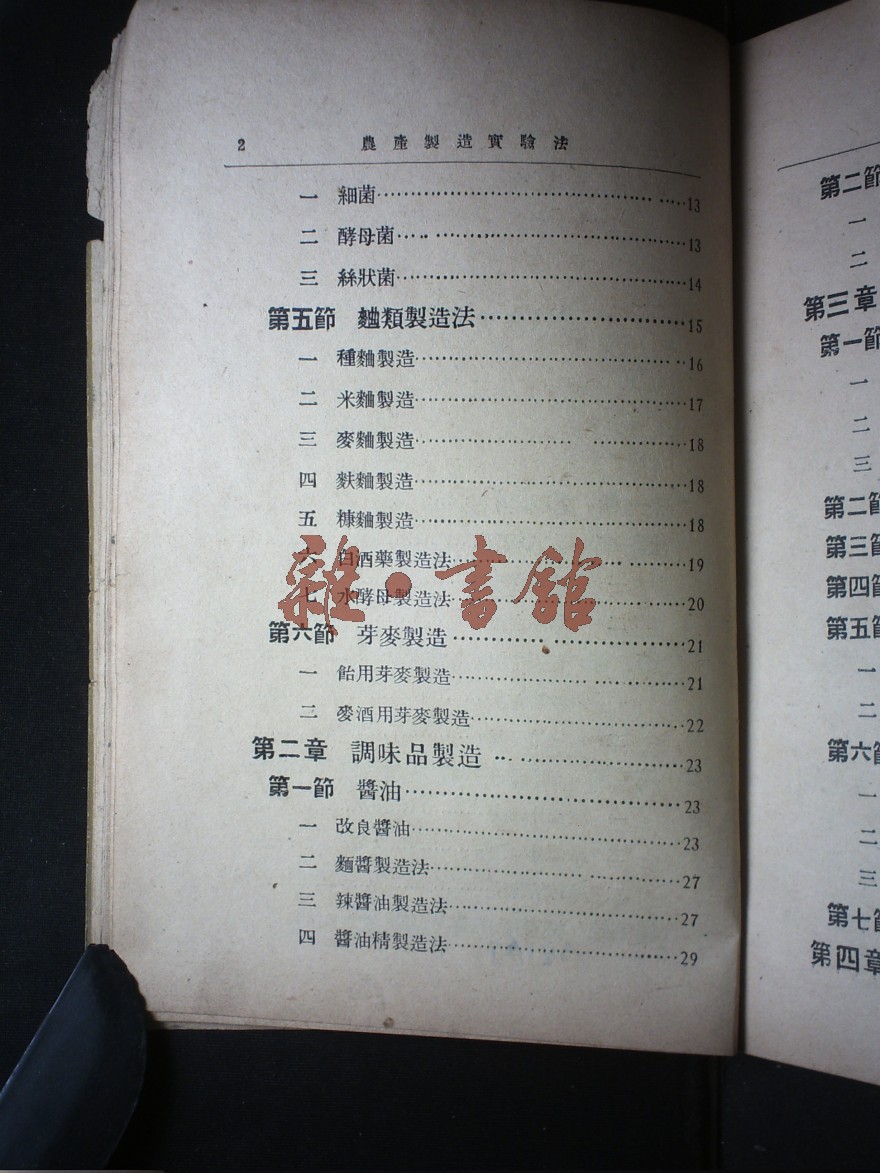 2 農產製造實驗法
一 細菌……13
二 酵母菌……13
三 絲狀菌……14
第五節 麯類製造法……15
一 種麯製造……16
二 米麯製造……17
三 麥麯製造……18
四 麩麯製造……18
五 糠麯製造……18
六 白酒藥製造法……19
七 水酵母製造法……20
第六節 芽麥製造……21
一 飴用芽麥製造……21
二 麥酒用芽麥製造……22
第二章 調味品製造……23
第一節 醬油……23
一 改良醬油……23
二 麵醬製造法……27
三 辣醬油製造法……27
四 醬油精製造法……29
雜·書館
第二節
一
二
第三章
第一節
一
二
三
第二節
第三節
第四節
第五節
一
二
第六節
一
二
三
第七節
第四章